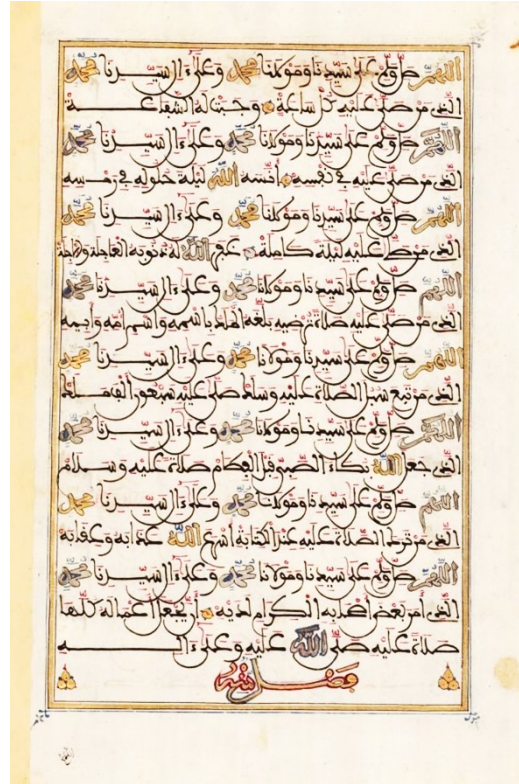 اللهم صل وسلم على سيدنا ومولانا محمد وعلى ءال سيدنا محمد
الذي من صلى عليه كل ساعة وجبت له الشفاعة
اللهم صل وسلم على سيدنا ومولانا محمد وعلى ءال سيدنا محمد
الذي من صلى عليه في نفسه ءانسه الله ليلة حلوله في رمسه
اللهم صل وسلم على سيدنا ومولانا محمد وعلى ءال سيدنا محمد
الذي من صلى عليه ليلة كاملة غفر الله له ذنوبه العاجلة والآجلة
اللهم صل وسلم على سيدنا ومولانا محمد وعلى ءال سيدنا محمد
الذي من صلى عليه صلاة ترضيه بلغه الملك باسمه واسم أمه وأبيه
اللهم صل وسلم على سيدنا ومولانا محمد وعلى ءال سيدنا محمد
الذي من تبع سبل الصلاة عليه وسلم صلى عليه سبعون ألف ملك
اللهم صل وسلم على سيدنا ومولانا محمد وعلى ءال سيدنا محمد
الذي جعل الله بكاء الصبي قبل الفطام صلاة عليه وسلام
اللهم صل وسلم على سيدنا ومولانا محمد وعلى ءال سيدنا محمد
الذي من ترك الصلاة عليه عند الكتابة أسرع الله عذابه وعقابه
اللهم صل وسلم على سيدنا ومولانا محمد وعلى ءال سيدنا محمد
الذي أمر بعض أصحابه الكرام لديه أن يجعل أعماله كلها
صلاة عليه صلى الله عليه وعلى ءاله
فصل منه